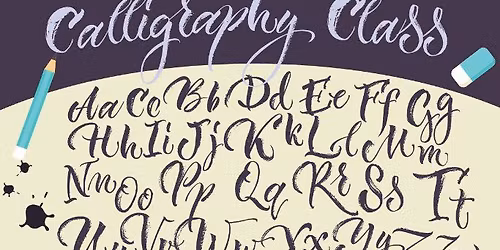 Calligraphy Class
Aa Cc Bb Dd Ee Ff Gg
Hh Ii Jj Kk Ll Mm
Nn Oo Pp Qq Rr Ss Tt
Uu Vv Ww Xx Yy Zz